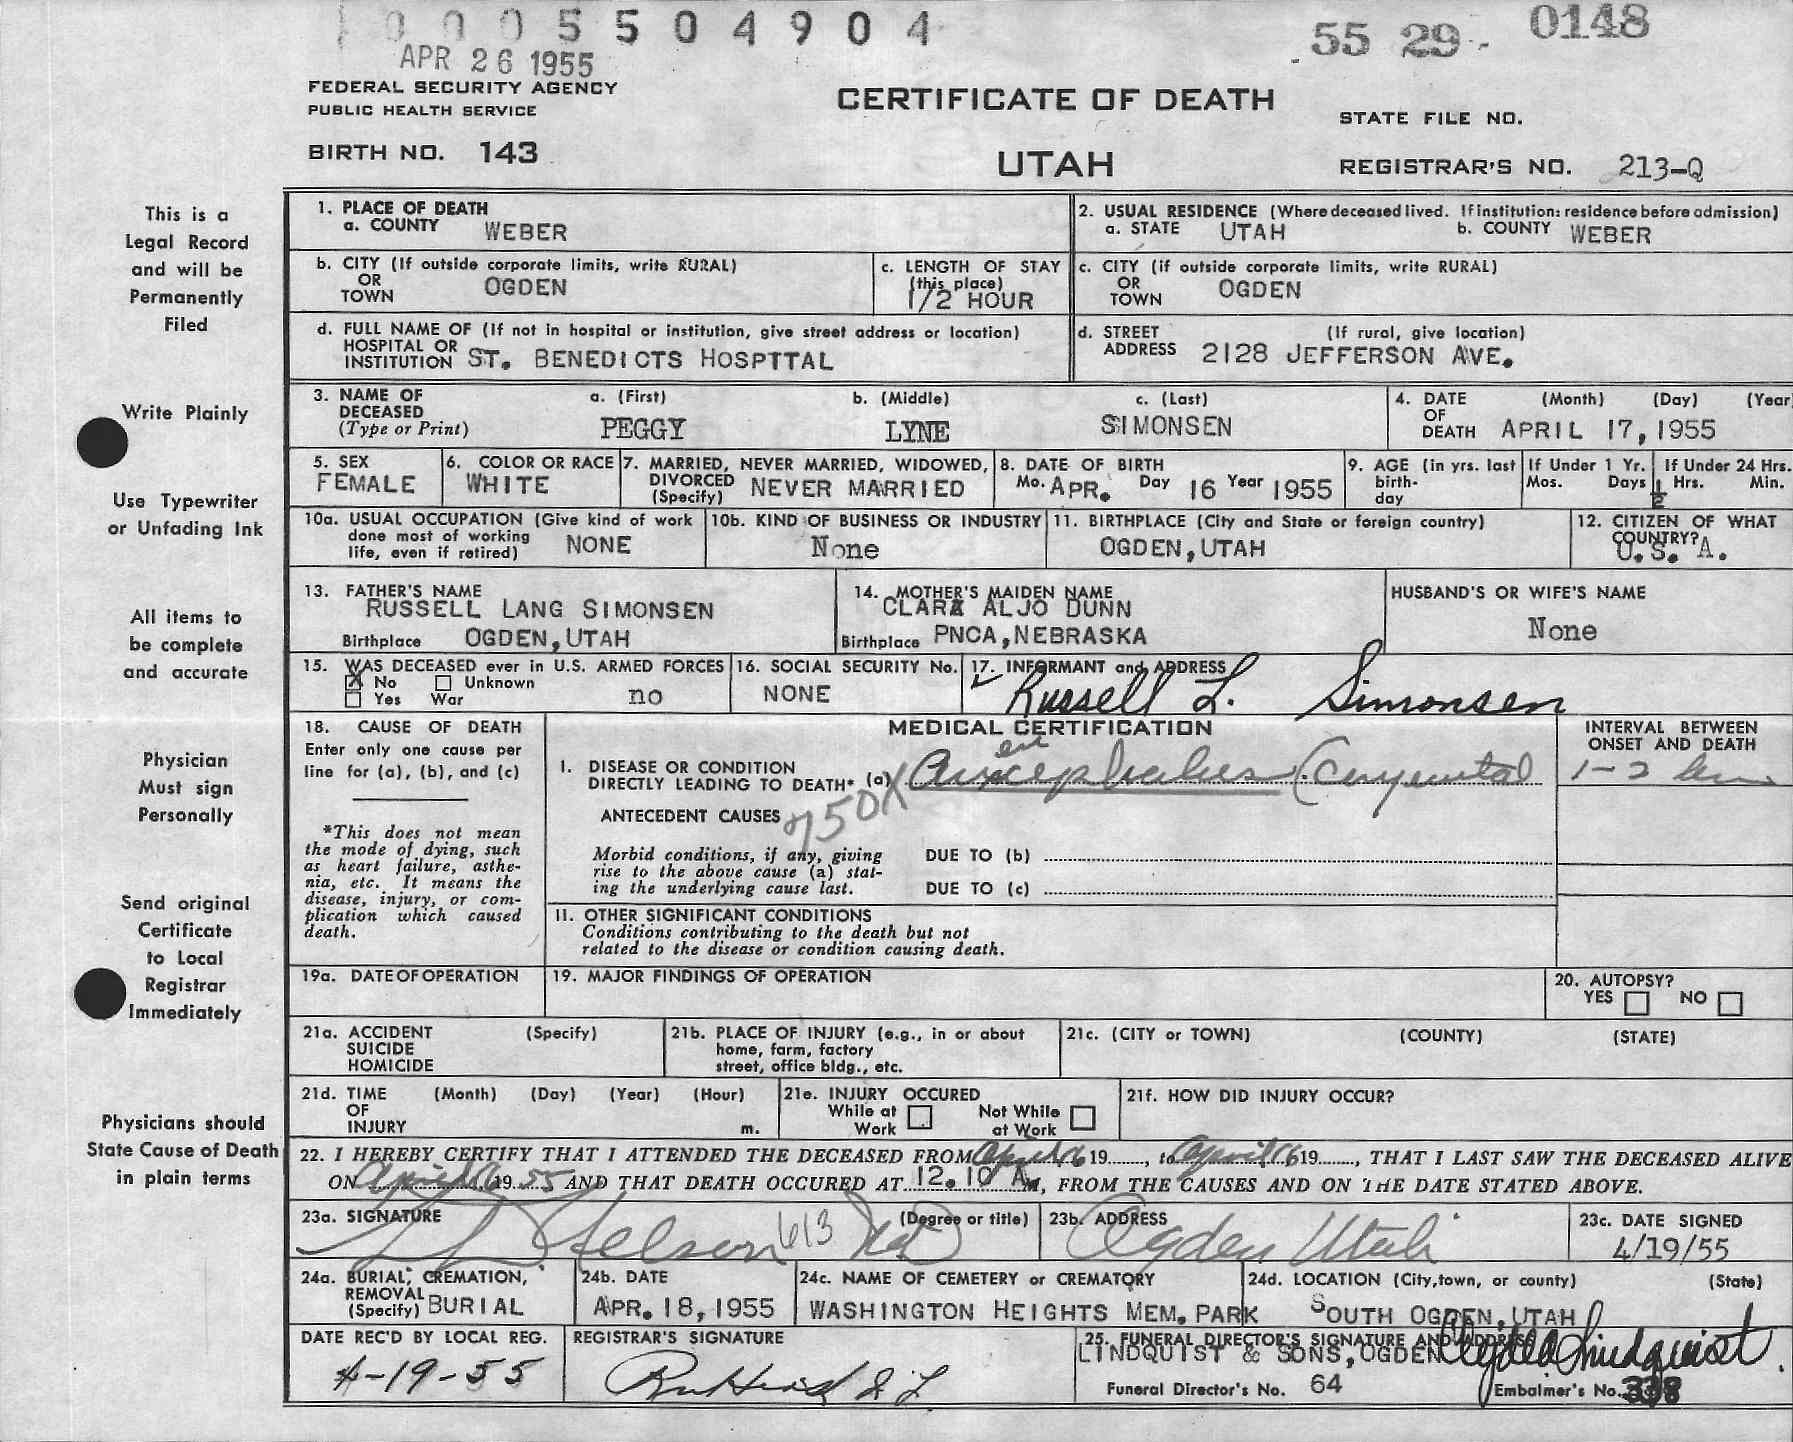 0005504904
APR 26 1955
55 29 - 0148
FEDERAL SECURITY AGENCY
PUBLIC HEALTH SERVICE
CERTIFICATE OF DEATH
STATE FILE NO.
BIRTH NO. 143
UTAH
REGISTRAR'S NO. 213-Q
This is a
Legal Record
and will be
Permanently
Filed
Write Plainly
Use Typewriter
or Unfading Ink
All items to
be complete
and accurate
Physician
Must sign
Personally
Send original
Certificate
to Local
Registrar
Immediately
Physicians should
State Cause of Death
in plain terms
1. PLACE OF DEATH
a. COUNTY WEBER
2. USUAL RESIDENCE (Where deceased lived. If institution: residence before admission)
a. STATE UTAH b. COUNTY WEBER
b. CITY (If outside corporate limits, write RURAL)
OR
TOWN OGDEN
c. LENGTH OF STAY
(this place)
1/2 HOUR
c. CITY (if outside corporate limits, write RURAL)
OR
TOWN OGDEN
d. FULL NAME OF (If not in hospital or institution, give street address or location)
HOSPITAL OR
INSTITUTION ST. BENEDICTS HOSPTTAL
d. STREET (If rural, give location)
ADDRESS 2128 JEFFERSON AVE.
3. NAME OF
DECEASED
(Type or Print)
a. (First) b. (Middle) c. (Last)
PEGGY LYNE SIMONSEN
4. DATE (Month) (Day) (Year
OF
DEATH APRIL 17, 1955
5. SEX
FEMALE
6. COLOR OR RACE
WHITE
7. MARRIED, NEVER MARRIED, WIDOWED,
DIVORCED
(Specify) NEVER MARRIED
8. DATE OF BIRTH
Mo. APR. Day 16 Year 1955
9. AGE (in yrs. last
birth-
day
If Under 1 Yr.
Mos. Days
If Under 24 Hrs.
1/2 Hrs. Min.
10a. USUAL OCCUPATION (Give kind of work
done most of working
life, even if retired) NONE
10b. KIND OF BUSINESS OR INDUSTRY
None
11. BIRTHPLACE (City and State or foreign country)
OGDEN, UTAH
12. CITIZEN OF WHAT
COUNTRY?
U.S.A.
13. FATHER'S NAME
RUSSELL LANG SIMONSEN
Birthplace OGDEN, UTAH
14. MOTHER'S MAIDEN NAME
CLARA ALJO DUNN
Birthplace PNCA, NEBRASKA
HUSBAND'S OR WIFE'S NAME
None
15. WAS DECEASED ever in U.S. ARMED FORCES
X No Unknown
Yes War no
16. SOCIAL SECURITY No.
NONE
17. INFORMANT and ADDRESS
Russell L. Simonsen
18. CAUSE OF DEATH
Enter only one cause per
line for (a), (b), and (c)
*This does not mean
the mode of dying, such
as heart failure, asthe-
nia, etc. It means the
disease, injury, or com-
plication which caused
death.
MEDICAL CERTIFICATION
INTERVAL BETWEEN
ONSET AND DEATH
I. DISEASE OR CONDITION
DIRECTLY LEADING TO DEATH* (a) Anencephalus (Congenital
1-2
750X
ANTECEDENT CAUSES
Morbid conditions, if any, giving
rise to the above cause (a) stat-
ing the underlying cause last.
DUE TO (b)
DUE TO (c)
II. OTHER SIGNIFICANT CONDITIONS
Conditions contributing to the death but not
related to the disease or condition causing death.
19a. DATE OF OPERATION
19. MAJOR FINDINGS OF OPERATION
20. AUTOPSY?
YES NO
21a. ACCIDENT (Specify)
SUICIDE
HOMICIDE
21b. PLACE OF INJURY (e.g., in or about
home, farm, factory
street, office bldg., etc.
21c. (CITY or TOWN) (COUNTY) (STATE)
21d. TIME (Month) (Day) (Year) (Hour)
OF
INJURY m.
21e. INJURY OCCURED
While at Work Not While at Work
21f. HOW DID INJURY OCCUR?
22. I HEREBY CERTIFY THAT I ATTENDED THE DECEASED FROM April 16 19....., to April 16 19....., THAT I LAST SAW THE DECEASED ALIVE
ON April 16, 19 55 AND THAT DEATH OCCURED AT 12.10 A m, FROM THE CAUSES AND ON THE DATE STATED ABOVE.
23a. SIGNATURE (Degree or title)
Nelson 613 MD
23b. ADDRESS
Ogden Utah
23c. DATE SIGNED
4/19/55
24a. BURIAL, CREMATION,
REMOVAL
(Specify) BURIAL
24b. DATE
APR. 18, 1955
24c. NAME OF CEMETERY or CREMATORY
WASHINGTON HEIGHTS MEM. PARK
24d. LOCATION (City, town, or county) (State)
SOUTH OGDEN, UTAH
DATE REC'D BY LOCAL REG.
4-19-55
REGISTRAR'S SIGNATURE
25. FUNERAL DIRECTOR'S SIGNATURE AND ADDRESS
LINDQUIST & SONS, OGDEN Clyde Lindquist.
Funeral Director's No. 64
Embalmer's No. 338